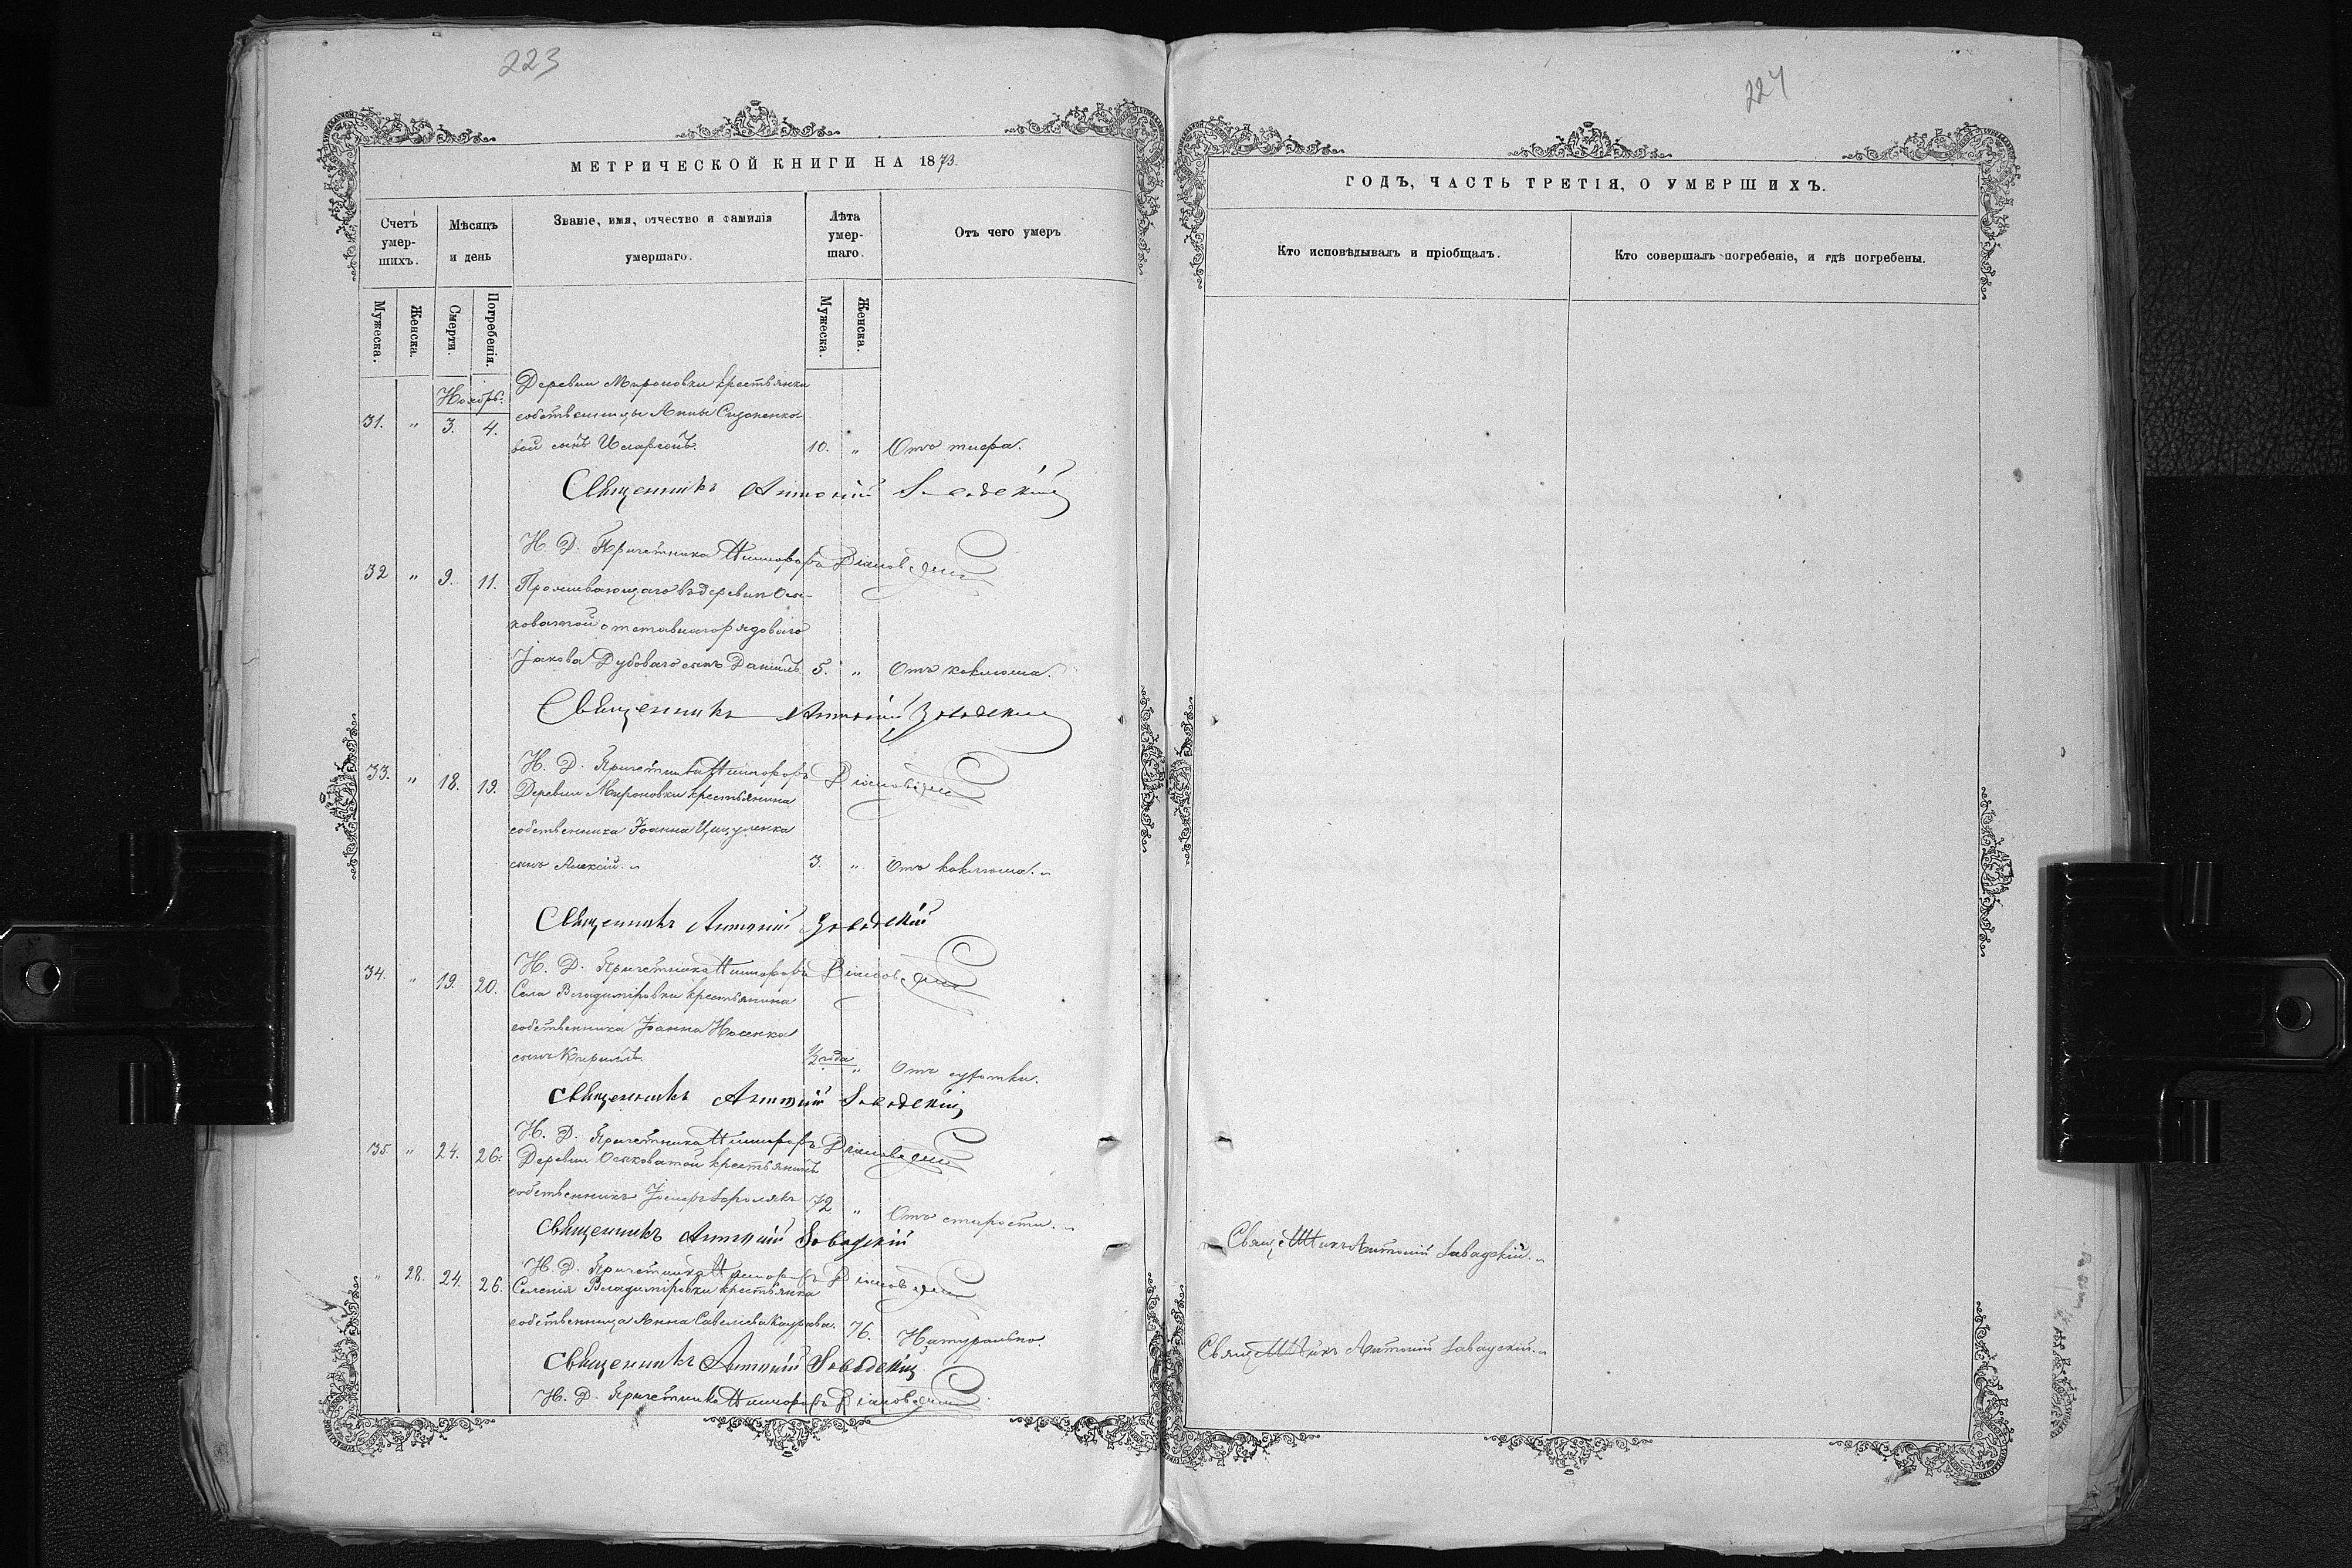 223
МЕТРИЧЕСКОЙ КНИГИ НА 1873.
Счетъ умер-шихъ.
Мѣсяцъ и день
Званіе, имя, отчество и фамилія умершаго.
Лѣта умер-шаго.
Отъ чего умеръ
Мужеска.
Женска.
Смерти.
Погребенія.
Мужеска.
Женска.
Ноябрь.
Деревни Мироновки крестьянки
31. " 3. 4. собственницы Анны Сидоренко-
вой сынъ Иларіонъ. 10. " Отъ тифа.
Священникъ Антоній Завадскій
Н. Д. Причетника Никифоръ
32 " 9. 11. Проживающаго въ деревни Оси-
коватой отставнаго рядоваго
Іакова Дубоваго сынъ Даніилъ 5. " Отъ коклюша.
Священникъ Антоній Завадскій
Н. Д. Причетника Никифоръ
33. " 18. 19. Деревни Мироновки крестьянина
собственника Іоанна Цицуленка
сынъ Алексій. 3. " Отъ коклюша.
Священникъ Антоній Завадскій
Н. Д. Причетника Никифоръ
34. " 19. 20. Села Владимировки крестьянина
собственника Іоанна Носенка
сынъ Кириллъ. ½ года " Отъ сухотки.
Священникъ Антоній Завадскій
Н. Д. Причетника Никифоръ
35. " 24. 26. Деревни Осиковатой крестьянинъ
собственникъ Іосифъ 72 " Отъ старости.
Священникъ Антоній Завадскій
Н. Д. Причетника Никифоръ
" 28. 24. 26. Селенія Владимировки крестьянка
собственница Анна Савеліева 76. Натурально.
Священникъ Антоній Завадскій
Н. Д. Причетника Никифоръ
224
ГОДЪ, ЧАСТЬ ТРЕТІЯ, О УМЕРШИХЪ.
Кто исповѣдывалъ и пріобщалъ.
Кто совершалъ погребеніе, и гдѣ погребены.
Священникъ Антоній Завадскій.
Священникъ Антоній Завадскій.